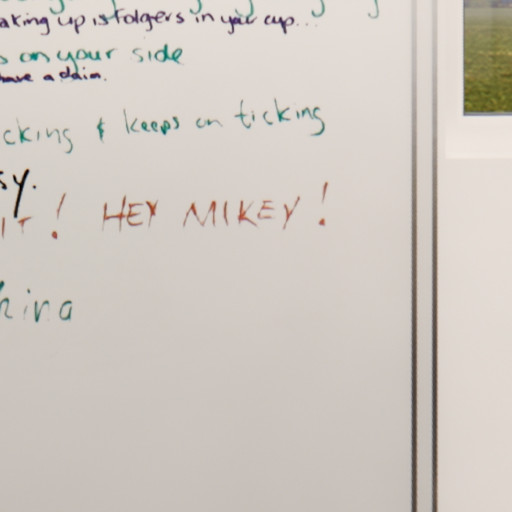 aking up is Folgers in your cup...
s on your side
have a claim.
cking & keeps on ticking
sy.
IT! HEY MIKEY!
hina